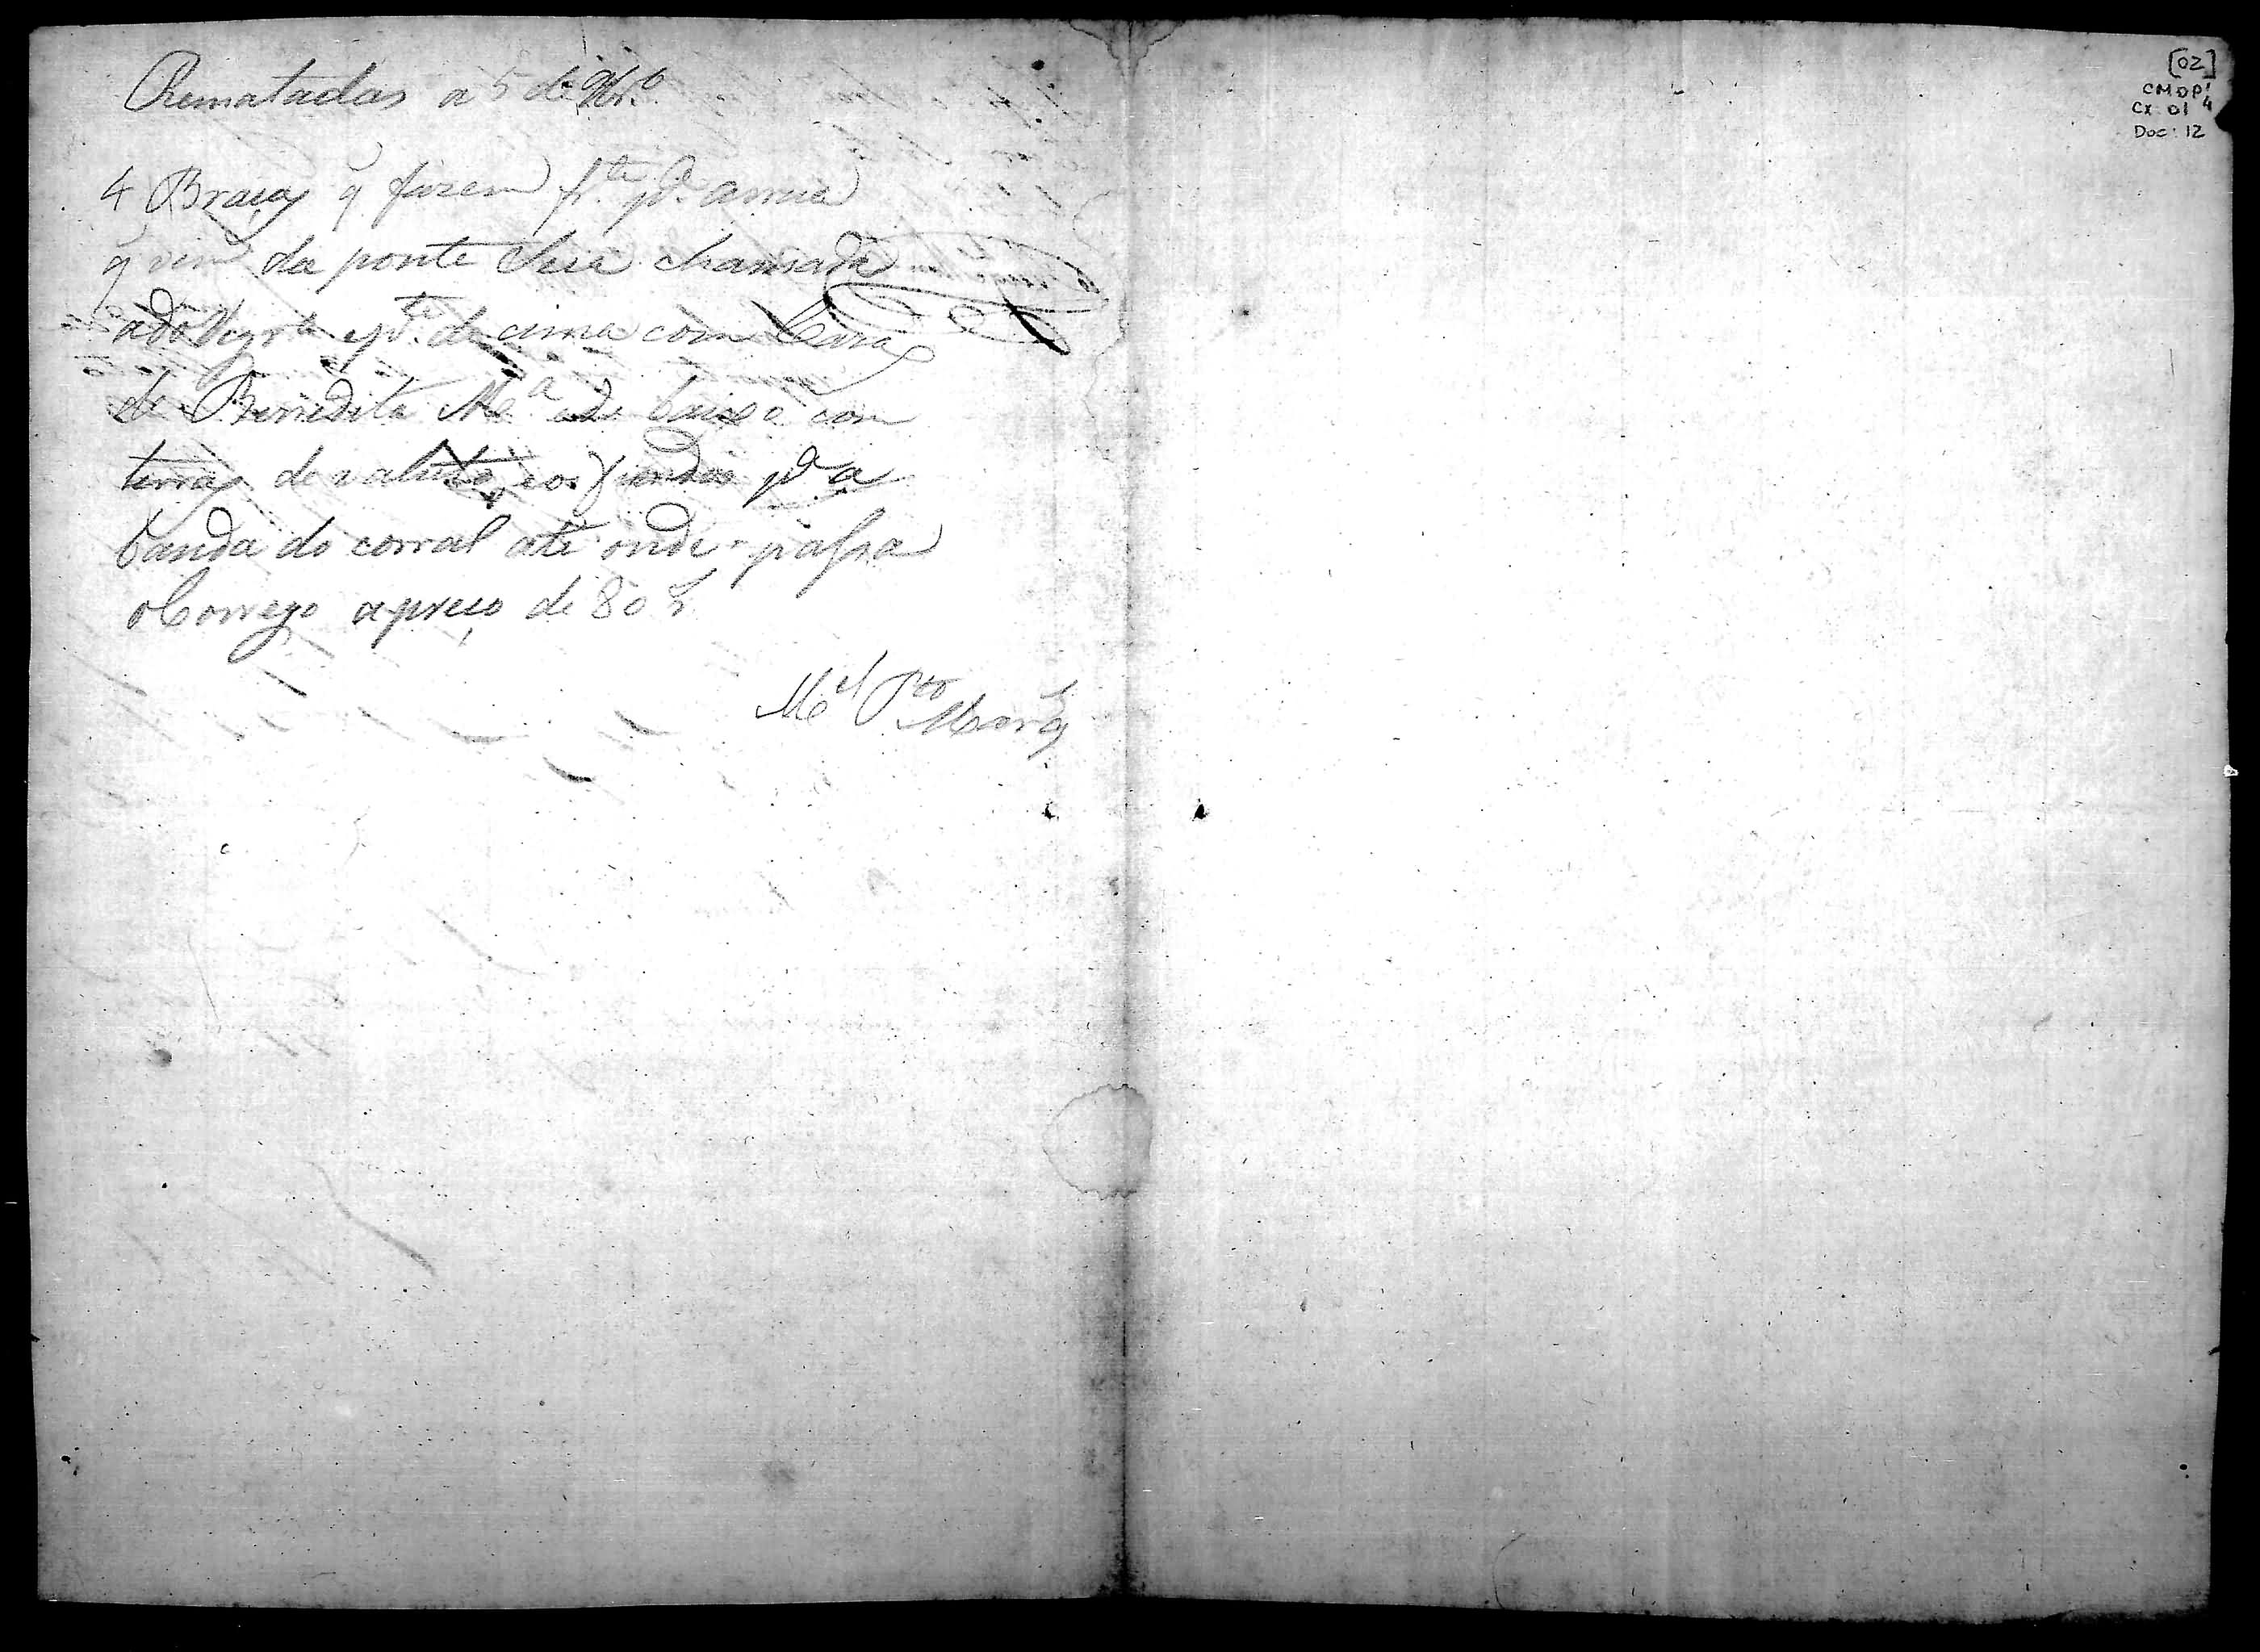 Rematadas a 5 de 9br.o
4 Braças q̃ fazem fr.te p.a arua
q̃ vem da ponte Seca chamada
ado Vigr.o e p.te de cima com Casas
de Bennedita M.a e de baixo com
terras de valuto, e os fundos p.a a
banda do corral até onde passa
o Corrego a preço de 80 r
M.el P.to Marq.s
[02]
CMOP
CX: 01
Doc: 12